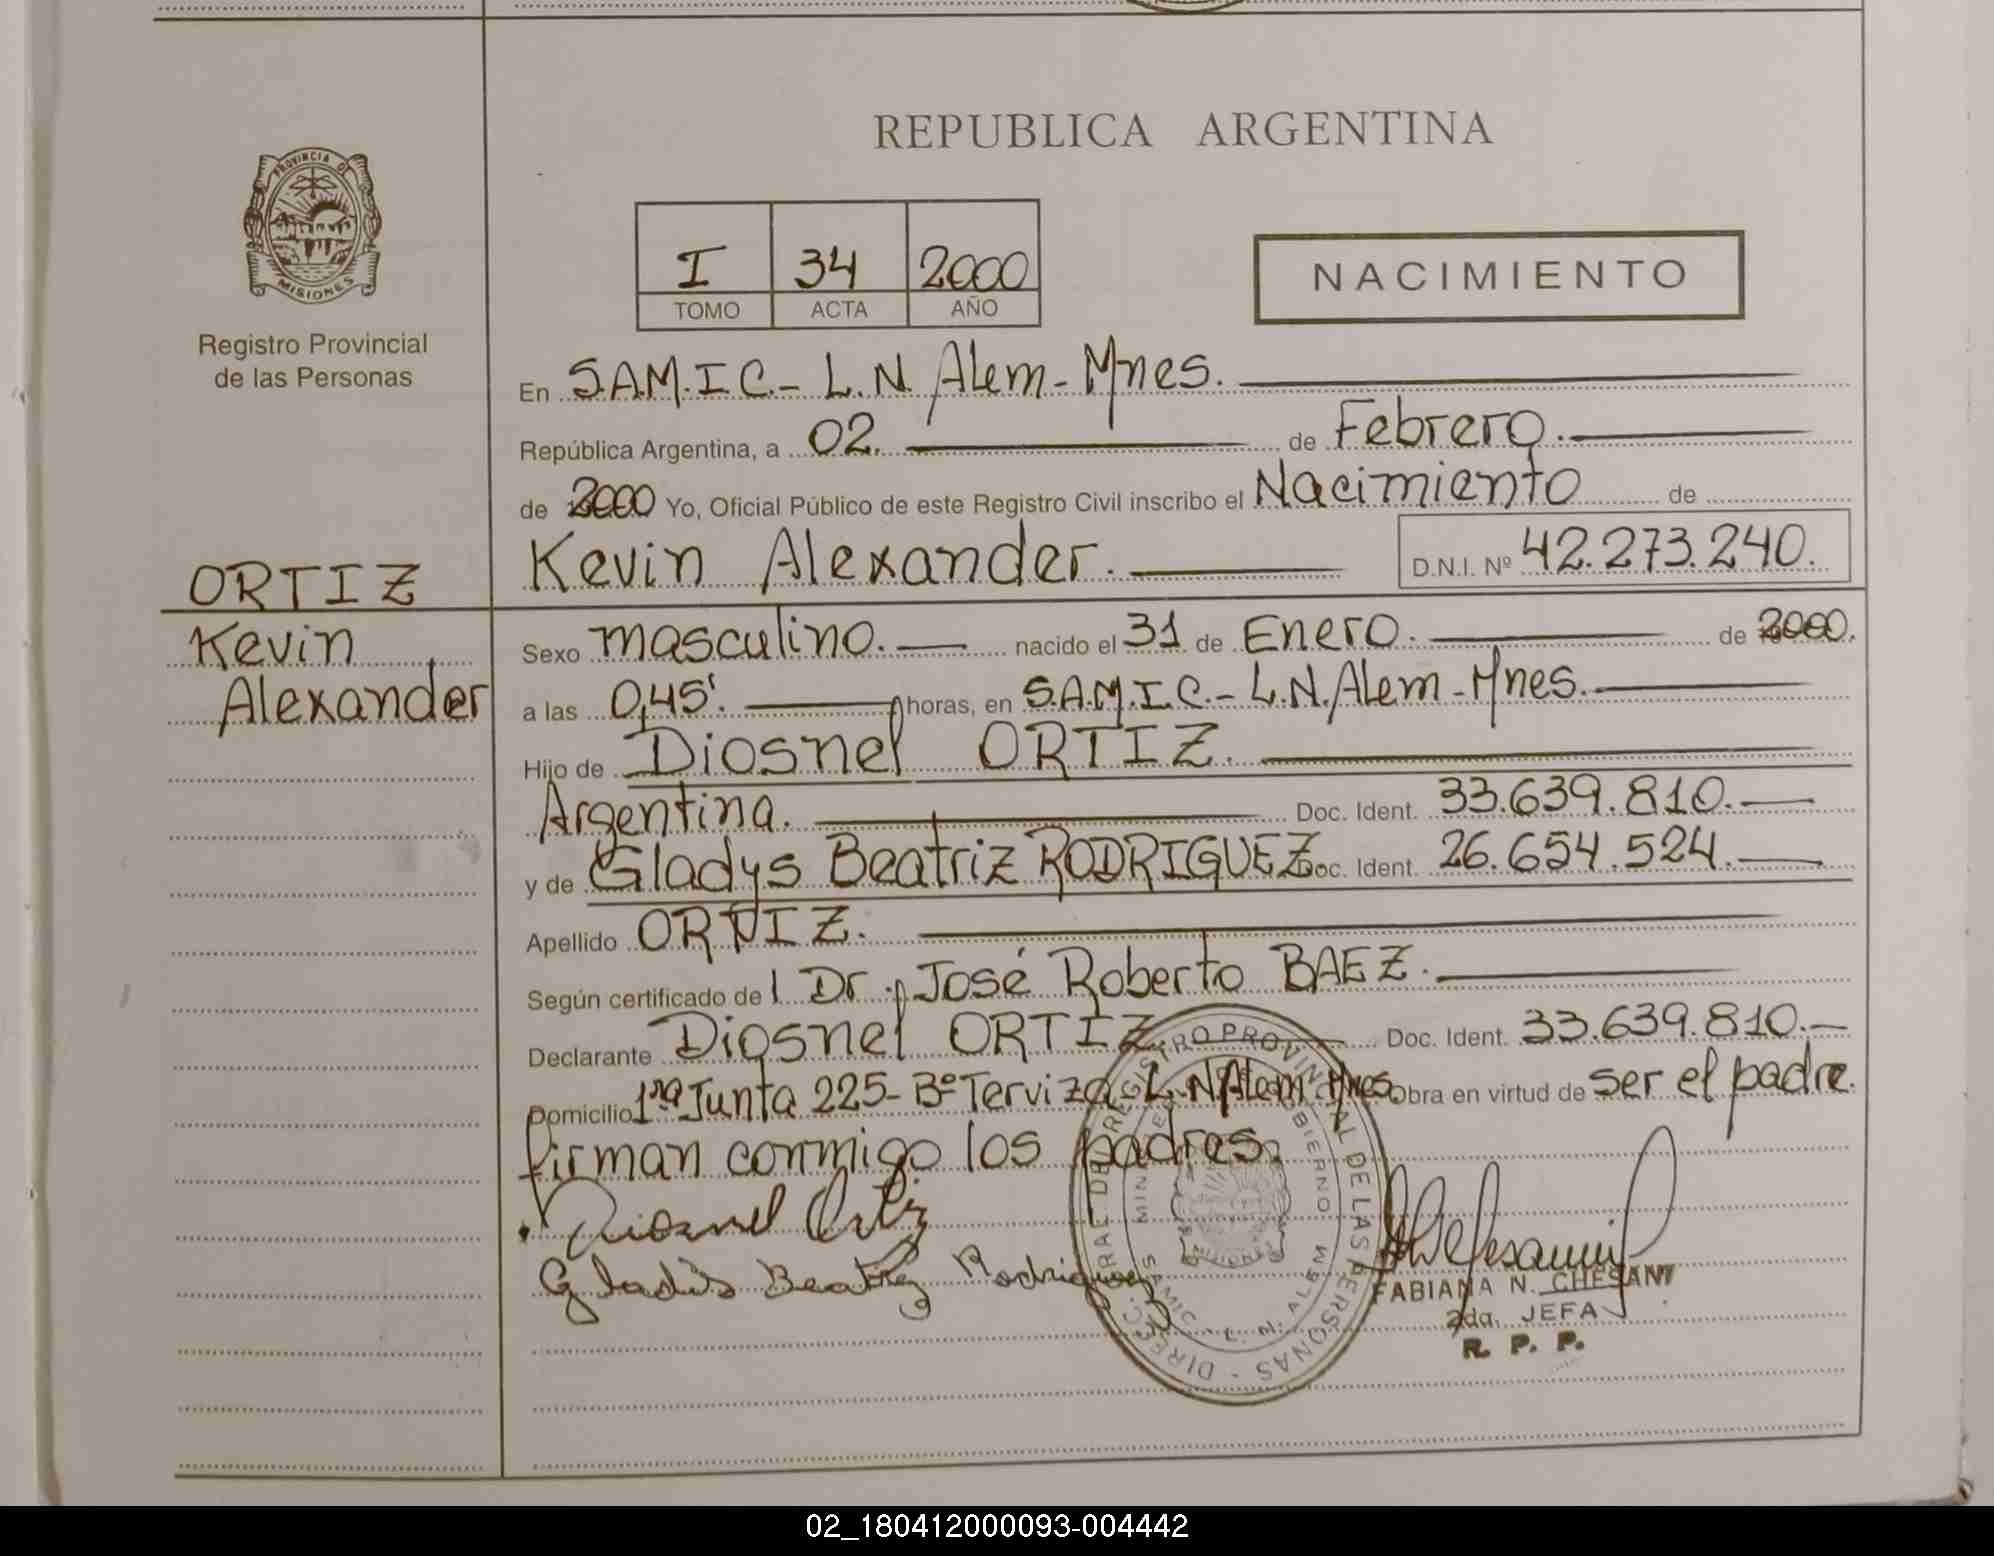 REPUBLICA ARGENTINA
PROVINCIA DE
MISIONES
Registro Provincial
de las Personas
I 34 2000
TOMO ACTA AÑO
NACIMIENTO
En S.A.M.I.C.- L.N. Alem - Mnes.
República Argentina, a 02. de Febrero.
de 2000 Yo, Oficial Público de este Registro Civil inscribo el Nacimiento de
Kevin Alexander. D.N.I. Nº 42.273.240.
ORTIZ
Kevin
Alexander
Sexo masculino. nacido el 31 de Enero. de 2000.
a las 0,45'. horas, en S.A.M.I.C.- L.N. Alem - Mnes.
Hijo de Diosnel ORTIZ.
Argentina. Doc. Ident. 33.639.810.
y de Gladys Beatriz RODRIGUEZ Doc. Ident. 26.654.524.
Apellido ORTIZ.
Según certificado de l Dr. José Roberto BAEZ.
Declarante Diosnel ORTIZ Doc. Ident. 33.639.810.
Domicilio 1ra Junta 225- Bº Terviza L.N Alem Mnes. Obra en virtud de ser el padre.
firman conmigo los padres.
Diosnel Ortiz
Gladis Beatriz Rodriguez
FABIANA N. CHESANI
2da. JEFA
R. P. P.
02_180412000093-004442